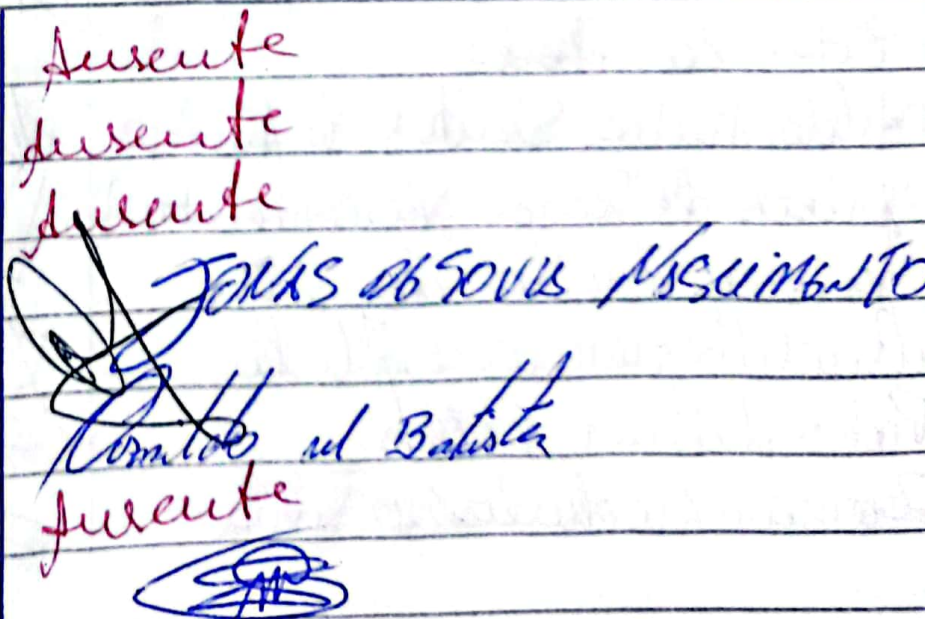 Ausente
Ausente
Ausente
JONAS DE SOUZA NASCIMENTO
Batista
Ausente